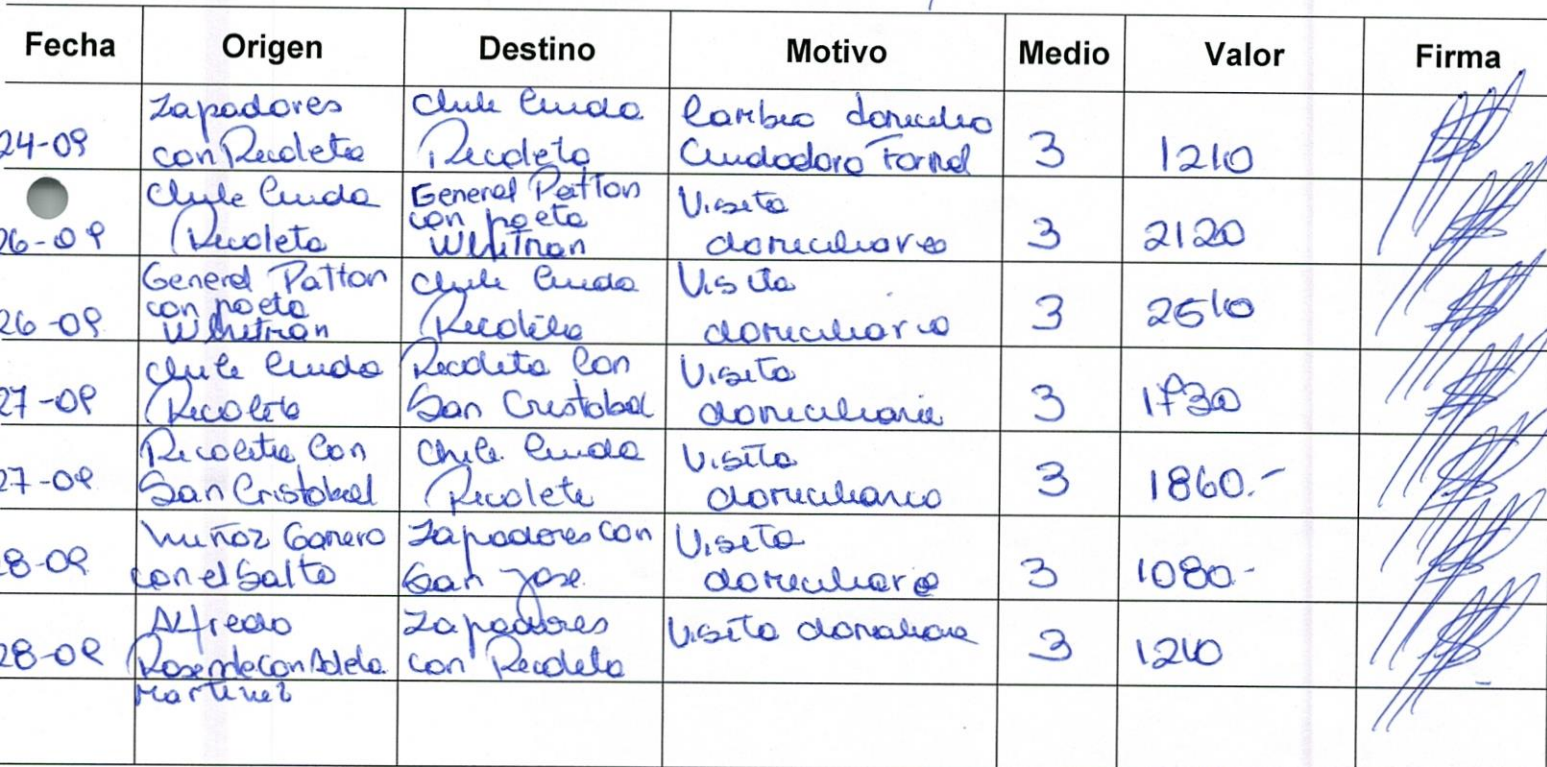 Fecha Origen Destino Motivo Medio Valor Firma
24-09 Zapadores con Recoleta Chile Cuida Recoleta Cambio domicilio Cuidadora Formal 3 1210
26-09 Chile Cuida Recoleta General Patton con poeta Whitman Visita domiciliaria 3 2120
26-09 General Patton con poeta Whitman Chile Cuida Recoleta Visita domiciliaria 3 2510
27-09 Chile Cuida Recoleta Recoleta Con San Cristobal Visita domiciliaria 3
27-09 Recoleta Con San Cristobal Chile Cuida Recoleta Visita domiciliaria 3 1860.-
8-09 Muñoz Gamero con el Salto Zapadores con San Jose Visita domiciliaria 3 1080-
28-09 Alfredo Rosende con Adela Martinez Zapadores con Recoleta Visita domiciliaria 3 1210